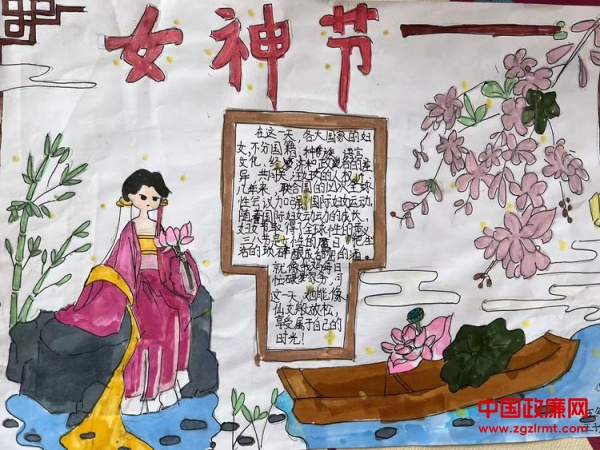 女神节
在这一天,各大国家的妇
女,不分国籍,种族、语言、
文化、经济和政见的差
异,共同关注妇女的人权。近
几年来,联合国的四次全球
性会议加强了国际妇女运动,
随着国际妇女运动的成长,
妇女节取得了全球性的意义
三八节是女性的魔 把生
活的 酿成甜 的酒。
就像我妈每日
忙碌 可
这一天,她能像
仙女般放松,
享受属于自己的
时光!
中国政廉网
www.zgzlrmt.com